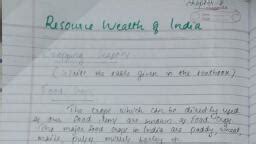 Chapter 8
Resource Wealth of India
Cropping Seasons
(Write the table given in the textbook)
Food Crops
The crops which can be directly used
as our food items are known as Food Crops.
The major food crops in India are paddy, wheat,
maize, pulses, millets, barley etc